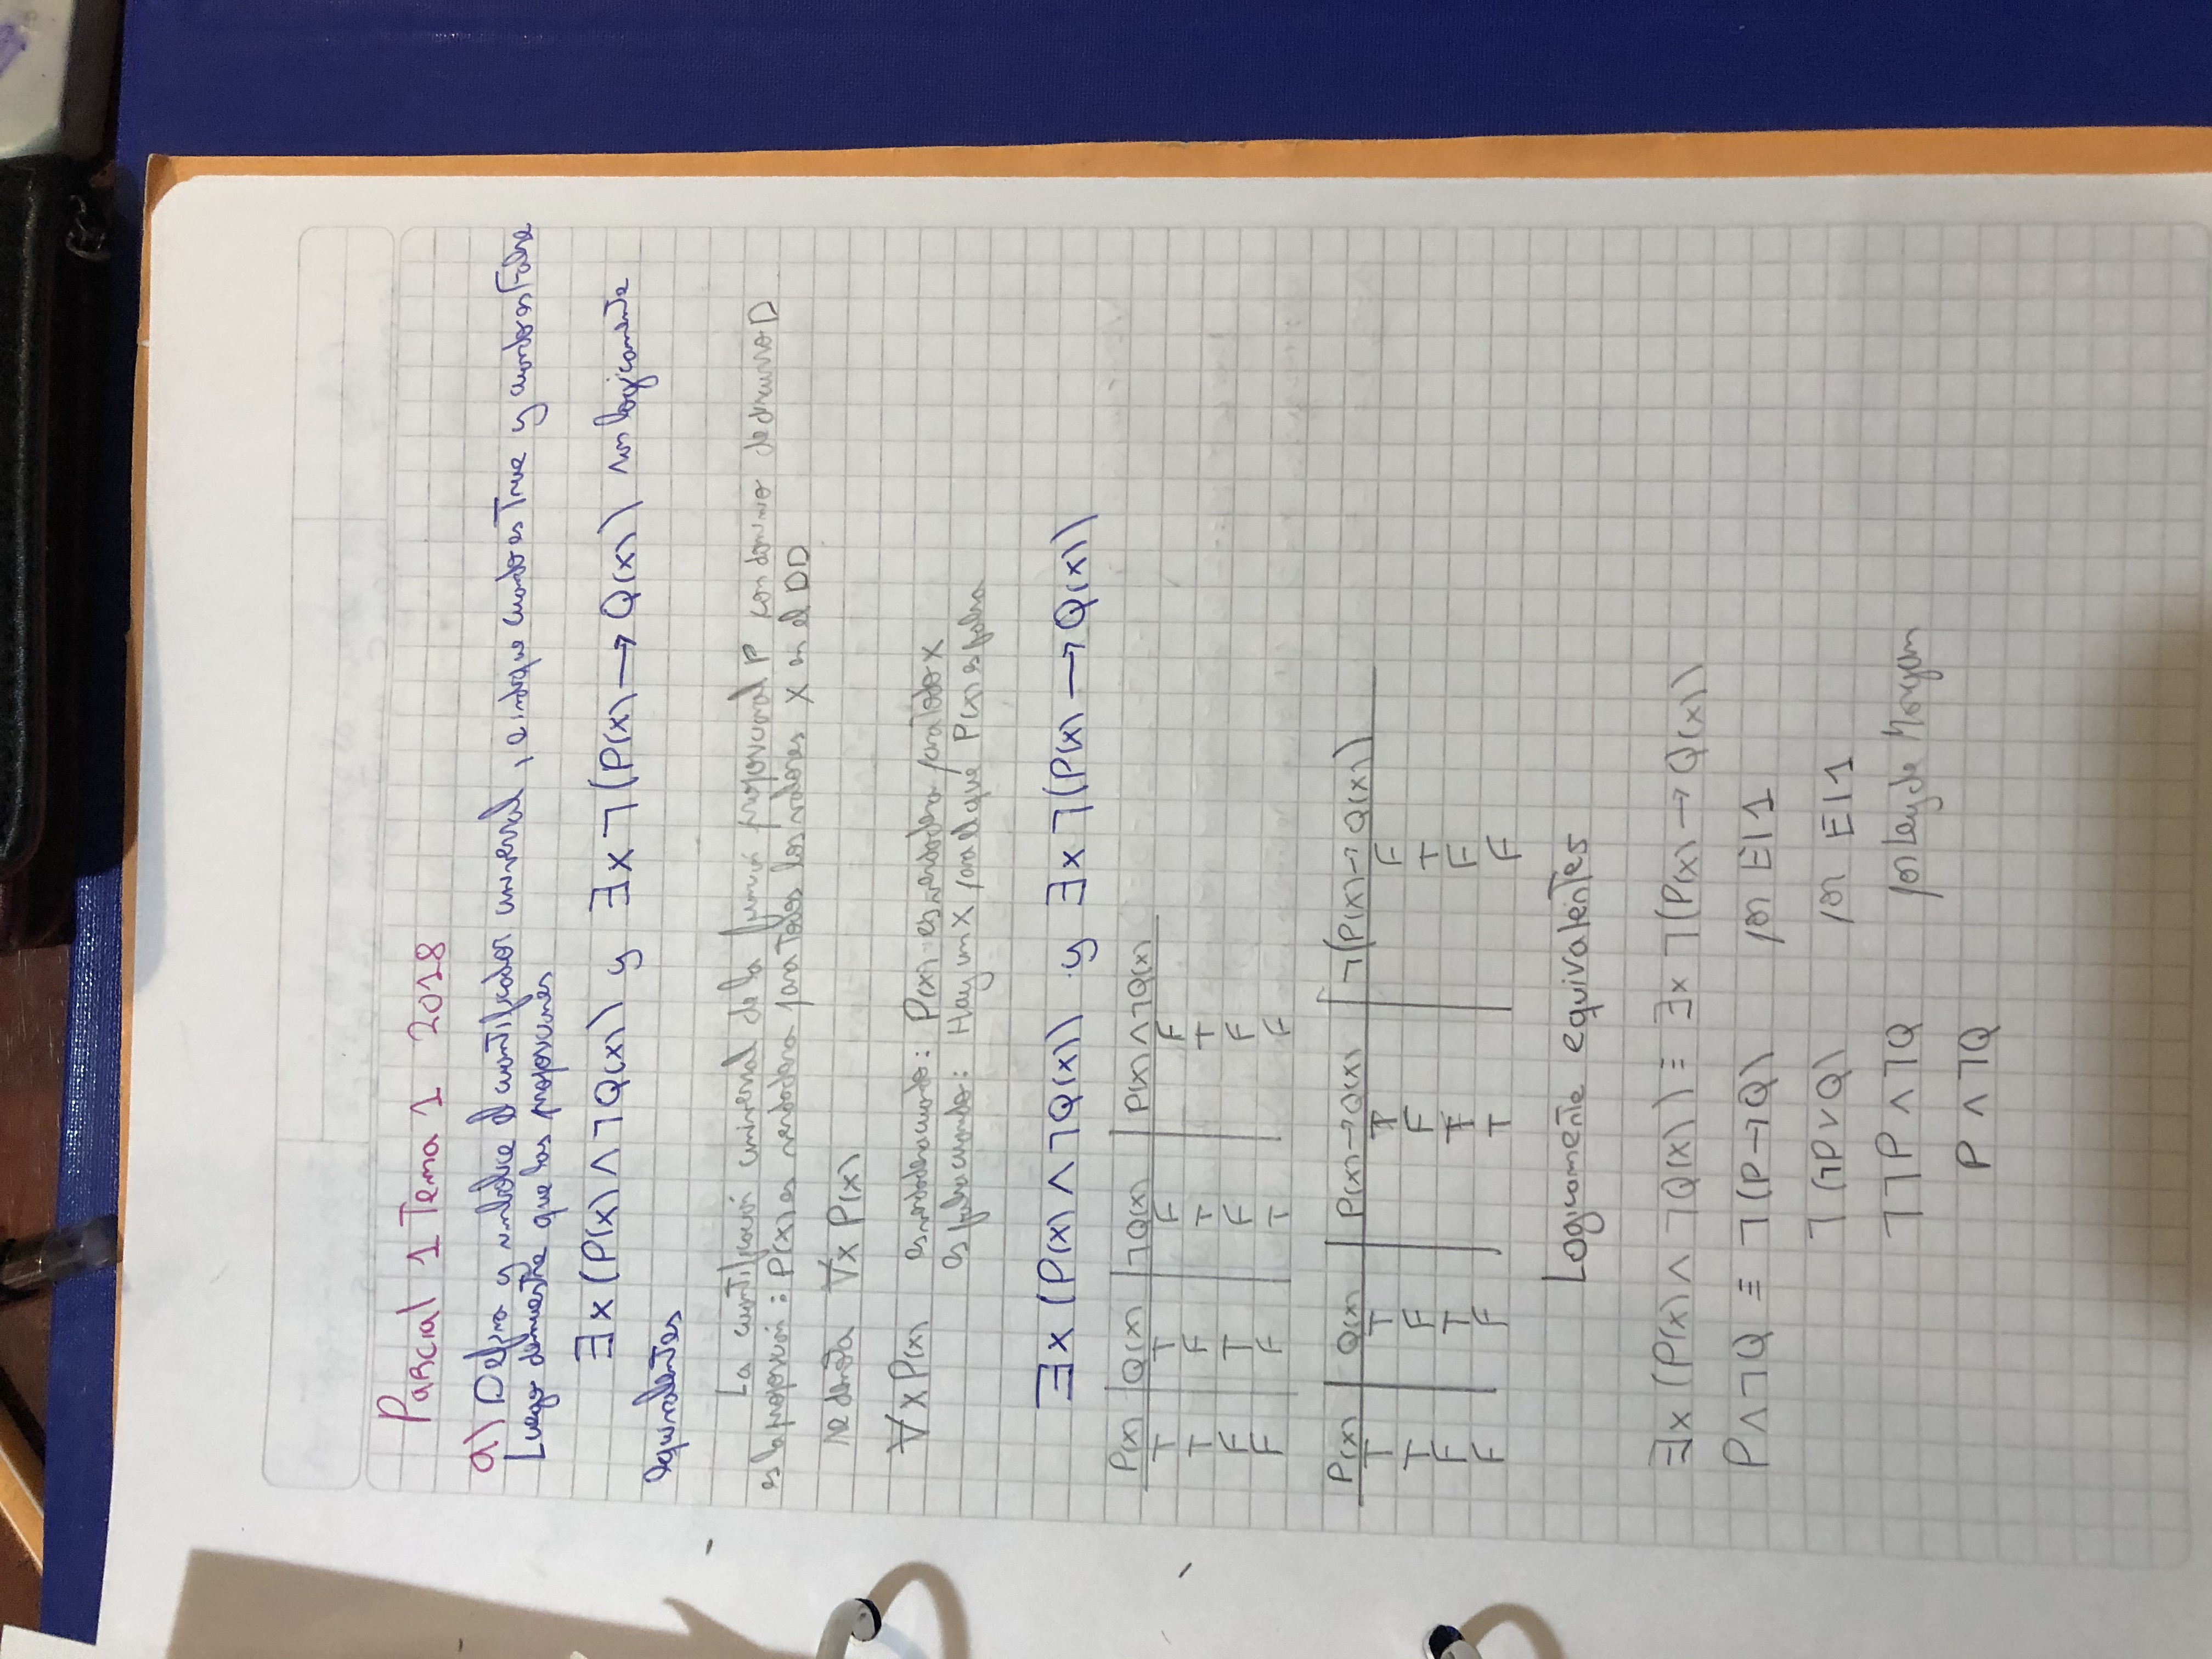 Parcial 1 Tema 1 2018
a) Defina y simbolice el cuantificador universal, e indique cuando es True y cuando es False
Luego demuestre que las proposiciones
∃x (P(x) ∧ ¬Q(x)) y ∃x ¬(P(x) → Q(x)) son logicamente
equivalentes
La cuantificación universal de la función proposicional P con dominio de discurso D
es la proposición: P(x) es verdadera para todos los valores X en el DD
se denota ∀x P(x)
∀x P(x) es verdadera cuando: P(x) es verdadera para todo x
es falsa cuando: Hay un X para el qué P(x) es falsa
∃x (P(x) ∧ ¬Q(x)) y ∃x ¬(P(x) → Q(x))
P(x) Q(x) ¬Q(x) P(x) ∧ ¬Q(x)
T T F F
T F T T
F T F F
F F T F
P(x) Q(x) P(x) → Q(x) ¬(P(x) → Q(x))
T T T F
T F F T
F T T F
F F T F
Logicamente equivalentes
∃x (P(x) ∧ ¬Q(x)) ≡ ∃x ¬(P(x) → Q(x))
P ∧ ¬Q ≡ ¬(P → Q) por EI1
¬(¬P ∨ Q) por EI1
¬¬P ∧ ¬Q por Ley de Morgan
P ∧ ¬Q